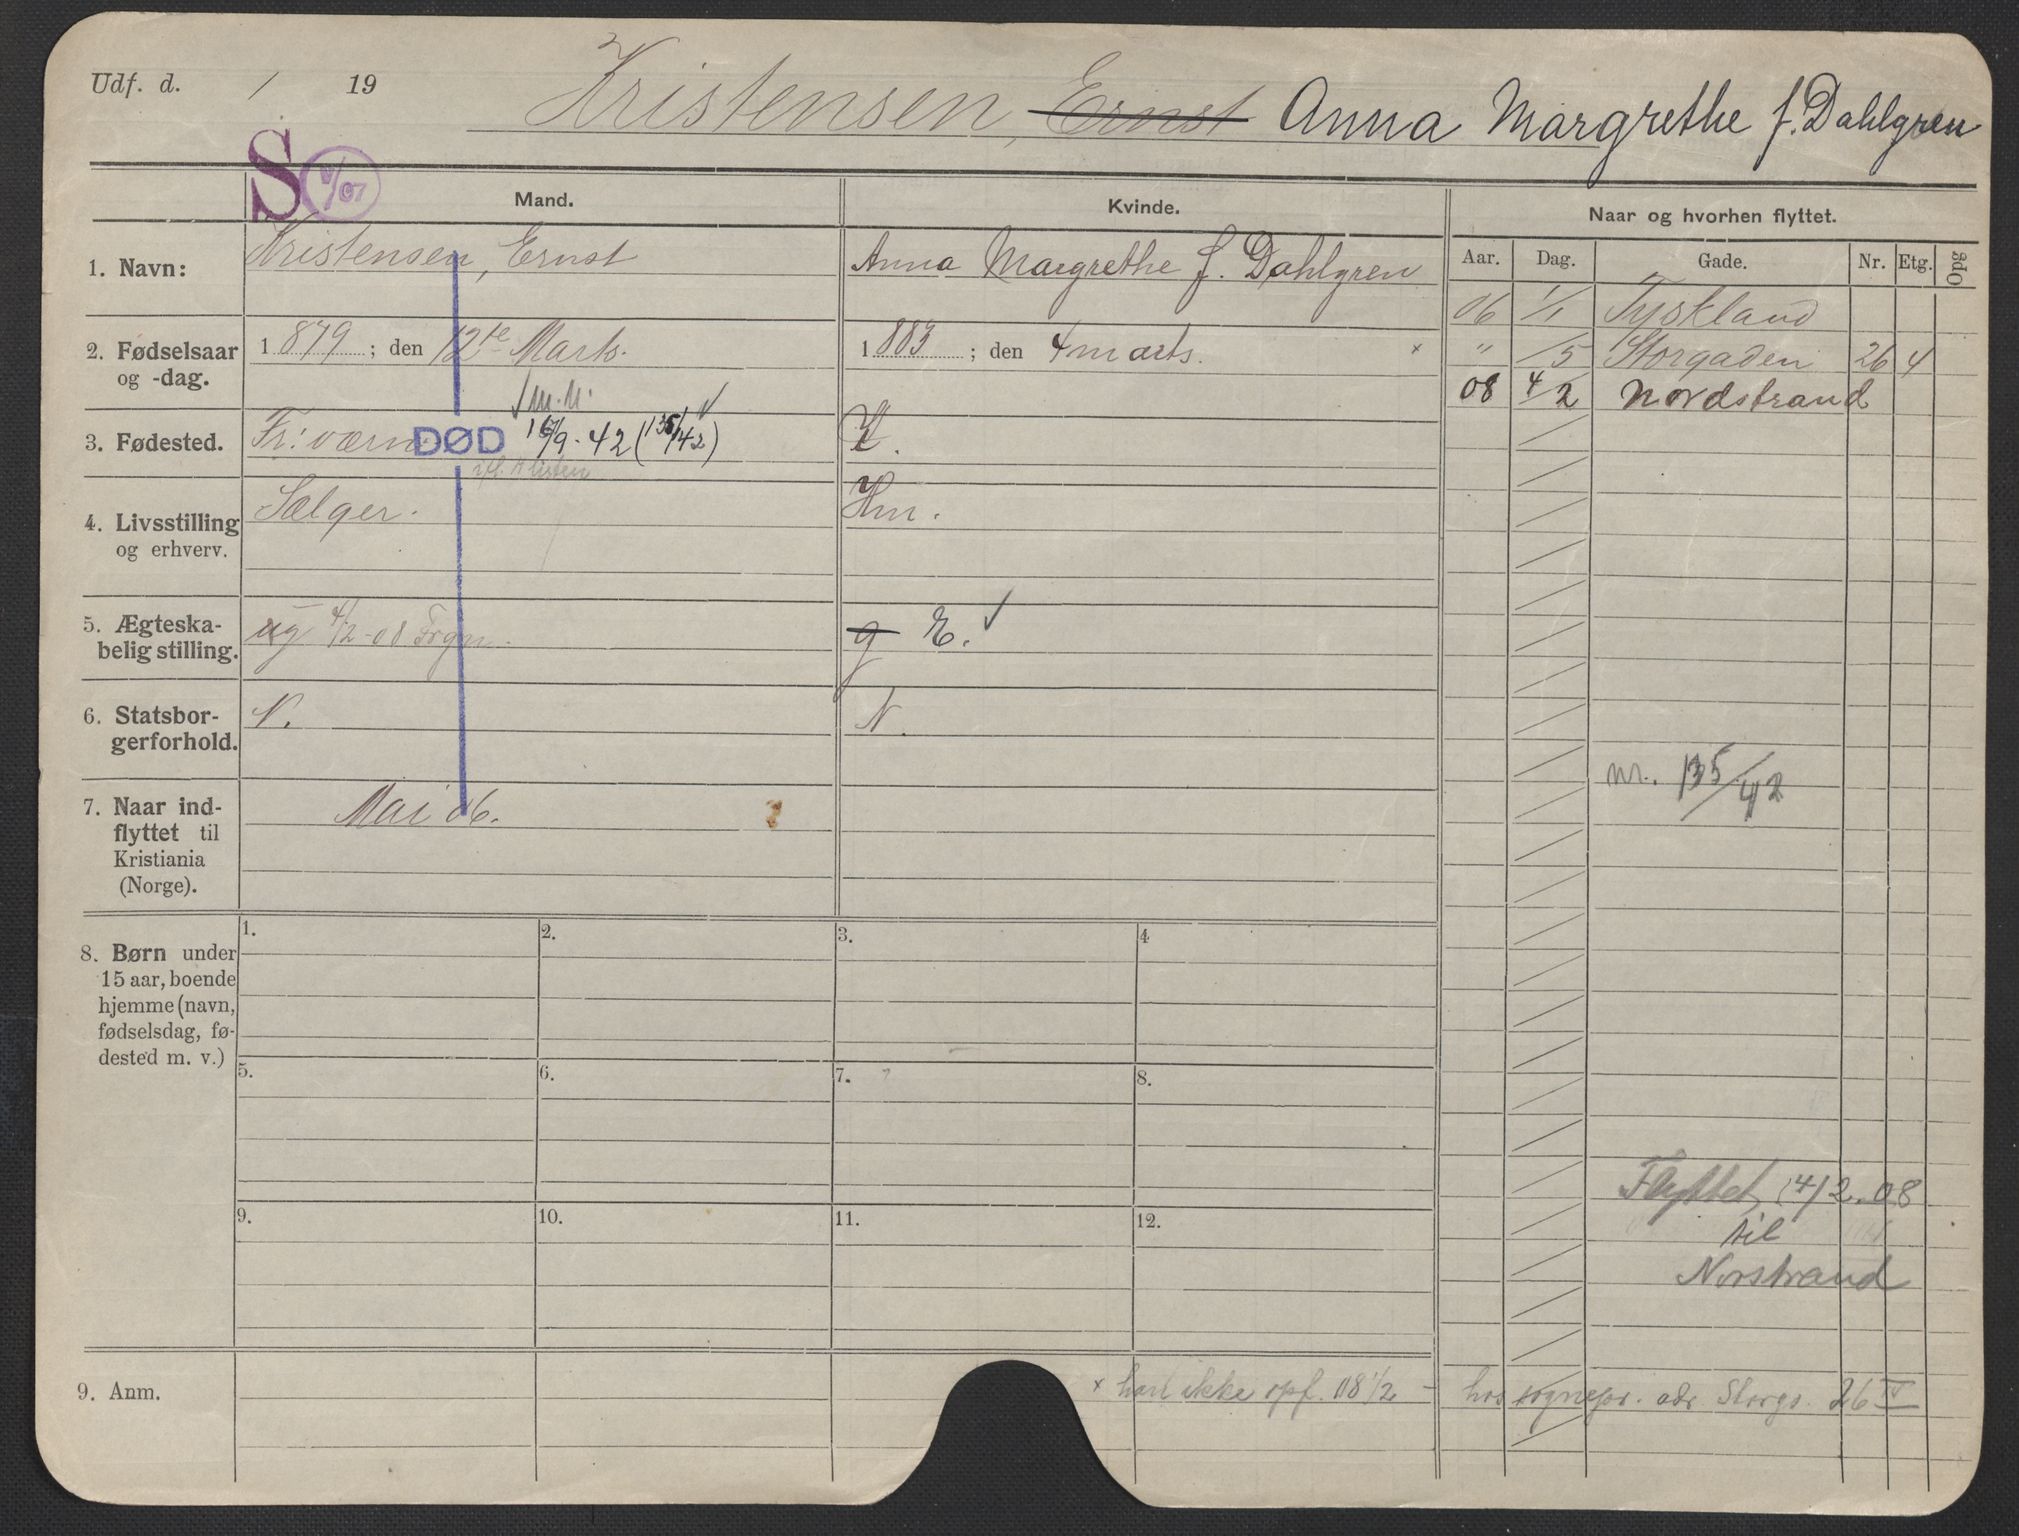 Udf. d. / 19
Kristensen, Ernst Anna Margrethe f. Dahlgren
S /07
Mand. Kvinde. Naar og hvorhen flyttet.
Aar. Dag. Gade. Nr. Etg. Opg
1. Navn: Kristensen, Ernst Anna Margrethe f. Dahlgren
06 1/1 Tyskland
2. Fødselsaar og -dag. 1879; den 12te Marts. 1883; den 4 marts. ×
" /5 Storgaden 26 4
08 4/2 Nordstrand
M.M.
3. Fødested. Fr:værn. DØD 16/9-42 (135/42) K.
4. Livsstilling og erhverv. Sælger. Hm.
5. Ægteska-
belig stilling. ug 4/2-08 Frgn. g E.
6. Statsbor-
gerforhold. N. N.
m. 135/42
7. Naar ind-
flyttet til
Kristiania
(Norge). Mai 06.
8. Børn under
15 aar, boende
hjemme (navn,
fødselsdag, fø-
dested m. v.)
1. 2. 3. 4
5. 6. 7. 8.
9. 10. 11. 12.
Flyttet 4/2-08
til
Norstrand
9. Anm. × han ikke opf. 08 1/2 - hos sognepr. adr Storgs. 26 IV